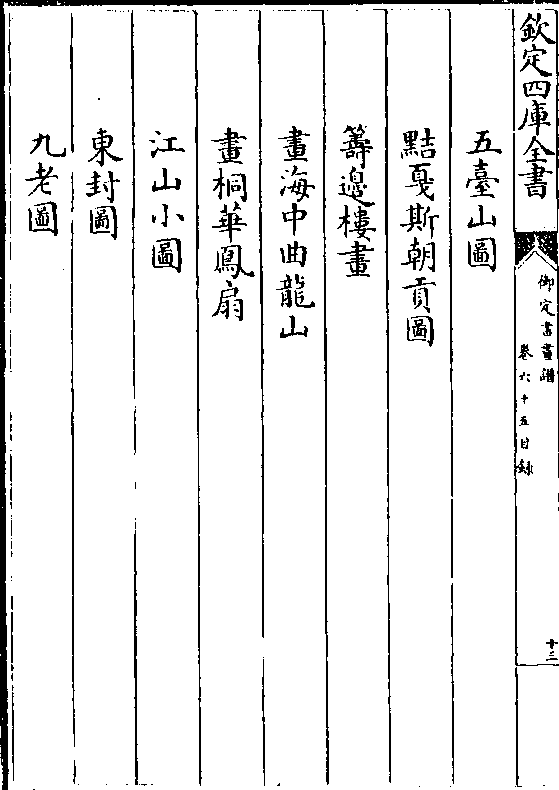 欽定四庫全書
御定書畫譜
卷六十五目錄
十三
五臺山圖
黠戛斯朝貢圖
籌邊樓畫
畫海中曲龍山
畫桐華鳳扇
江山小圖
東封圖
九老圖